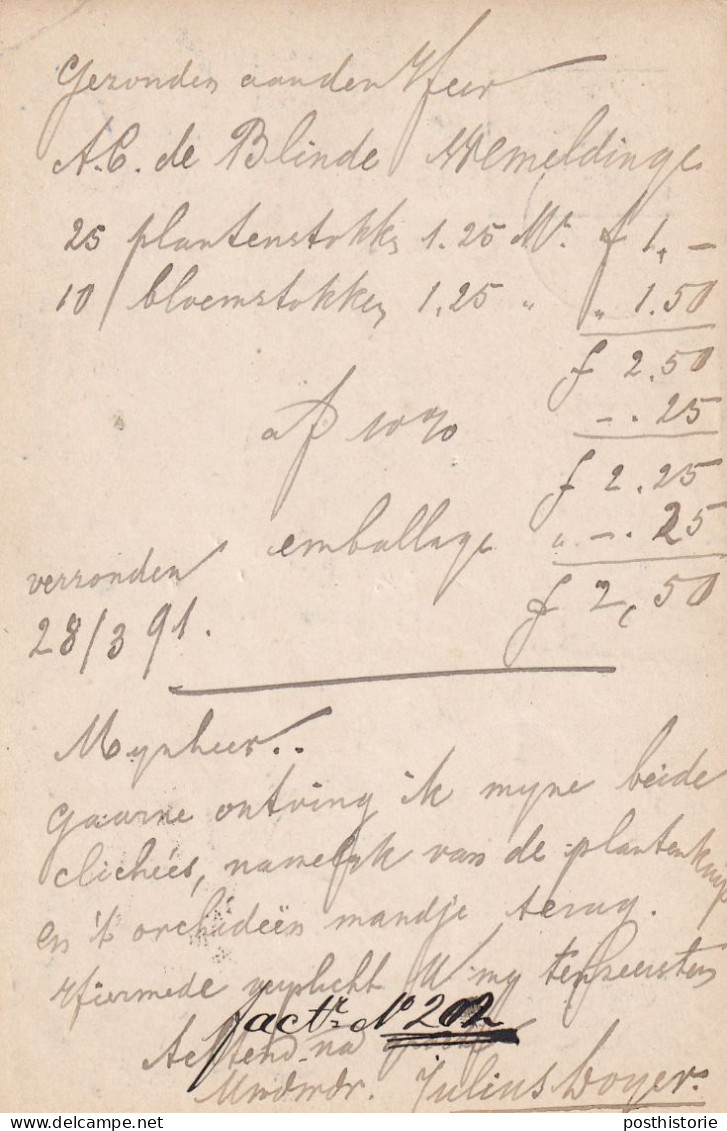 Gezonden aan den Heer
A.C. de Blinde Wemeldinge
25 plantenstokken 1.25 Mr. f 1,—
10 bloemstokken 1,25 " " 1.50
f 2.50
af 10% —.25
f 2.25
emballage " —.25
verzonden f 2,50
28/3 91.
Mynheer..
Gaarne ontving ik myne beide
clichées, namelyk van de planten kuip
en 't orchideën mandje terug.
Hiermede verplicht U my ten zeersten
factr. No 202
Achtend
Uwdwdr. Julius Doyer.
posthistorie